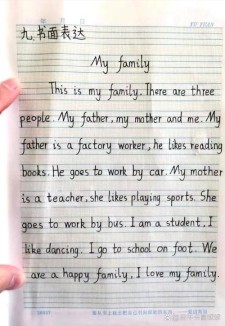 九.书面表达
My family
This is my family. There are three
people. My father, my mother and me. My
father is a factory worker, he likes reading
books. He goes to work by car. My mother
is a teacher, she likes playing sports. She
goes to work by bus. I am a student, I
like dancing. I go to school on foot. We
are a happy family, I love my family.